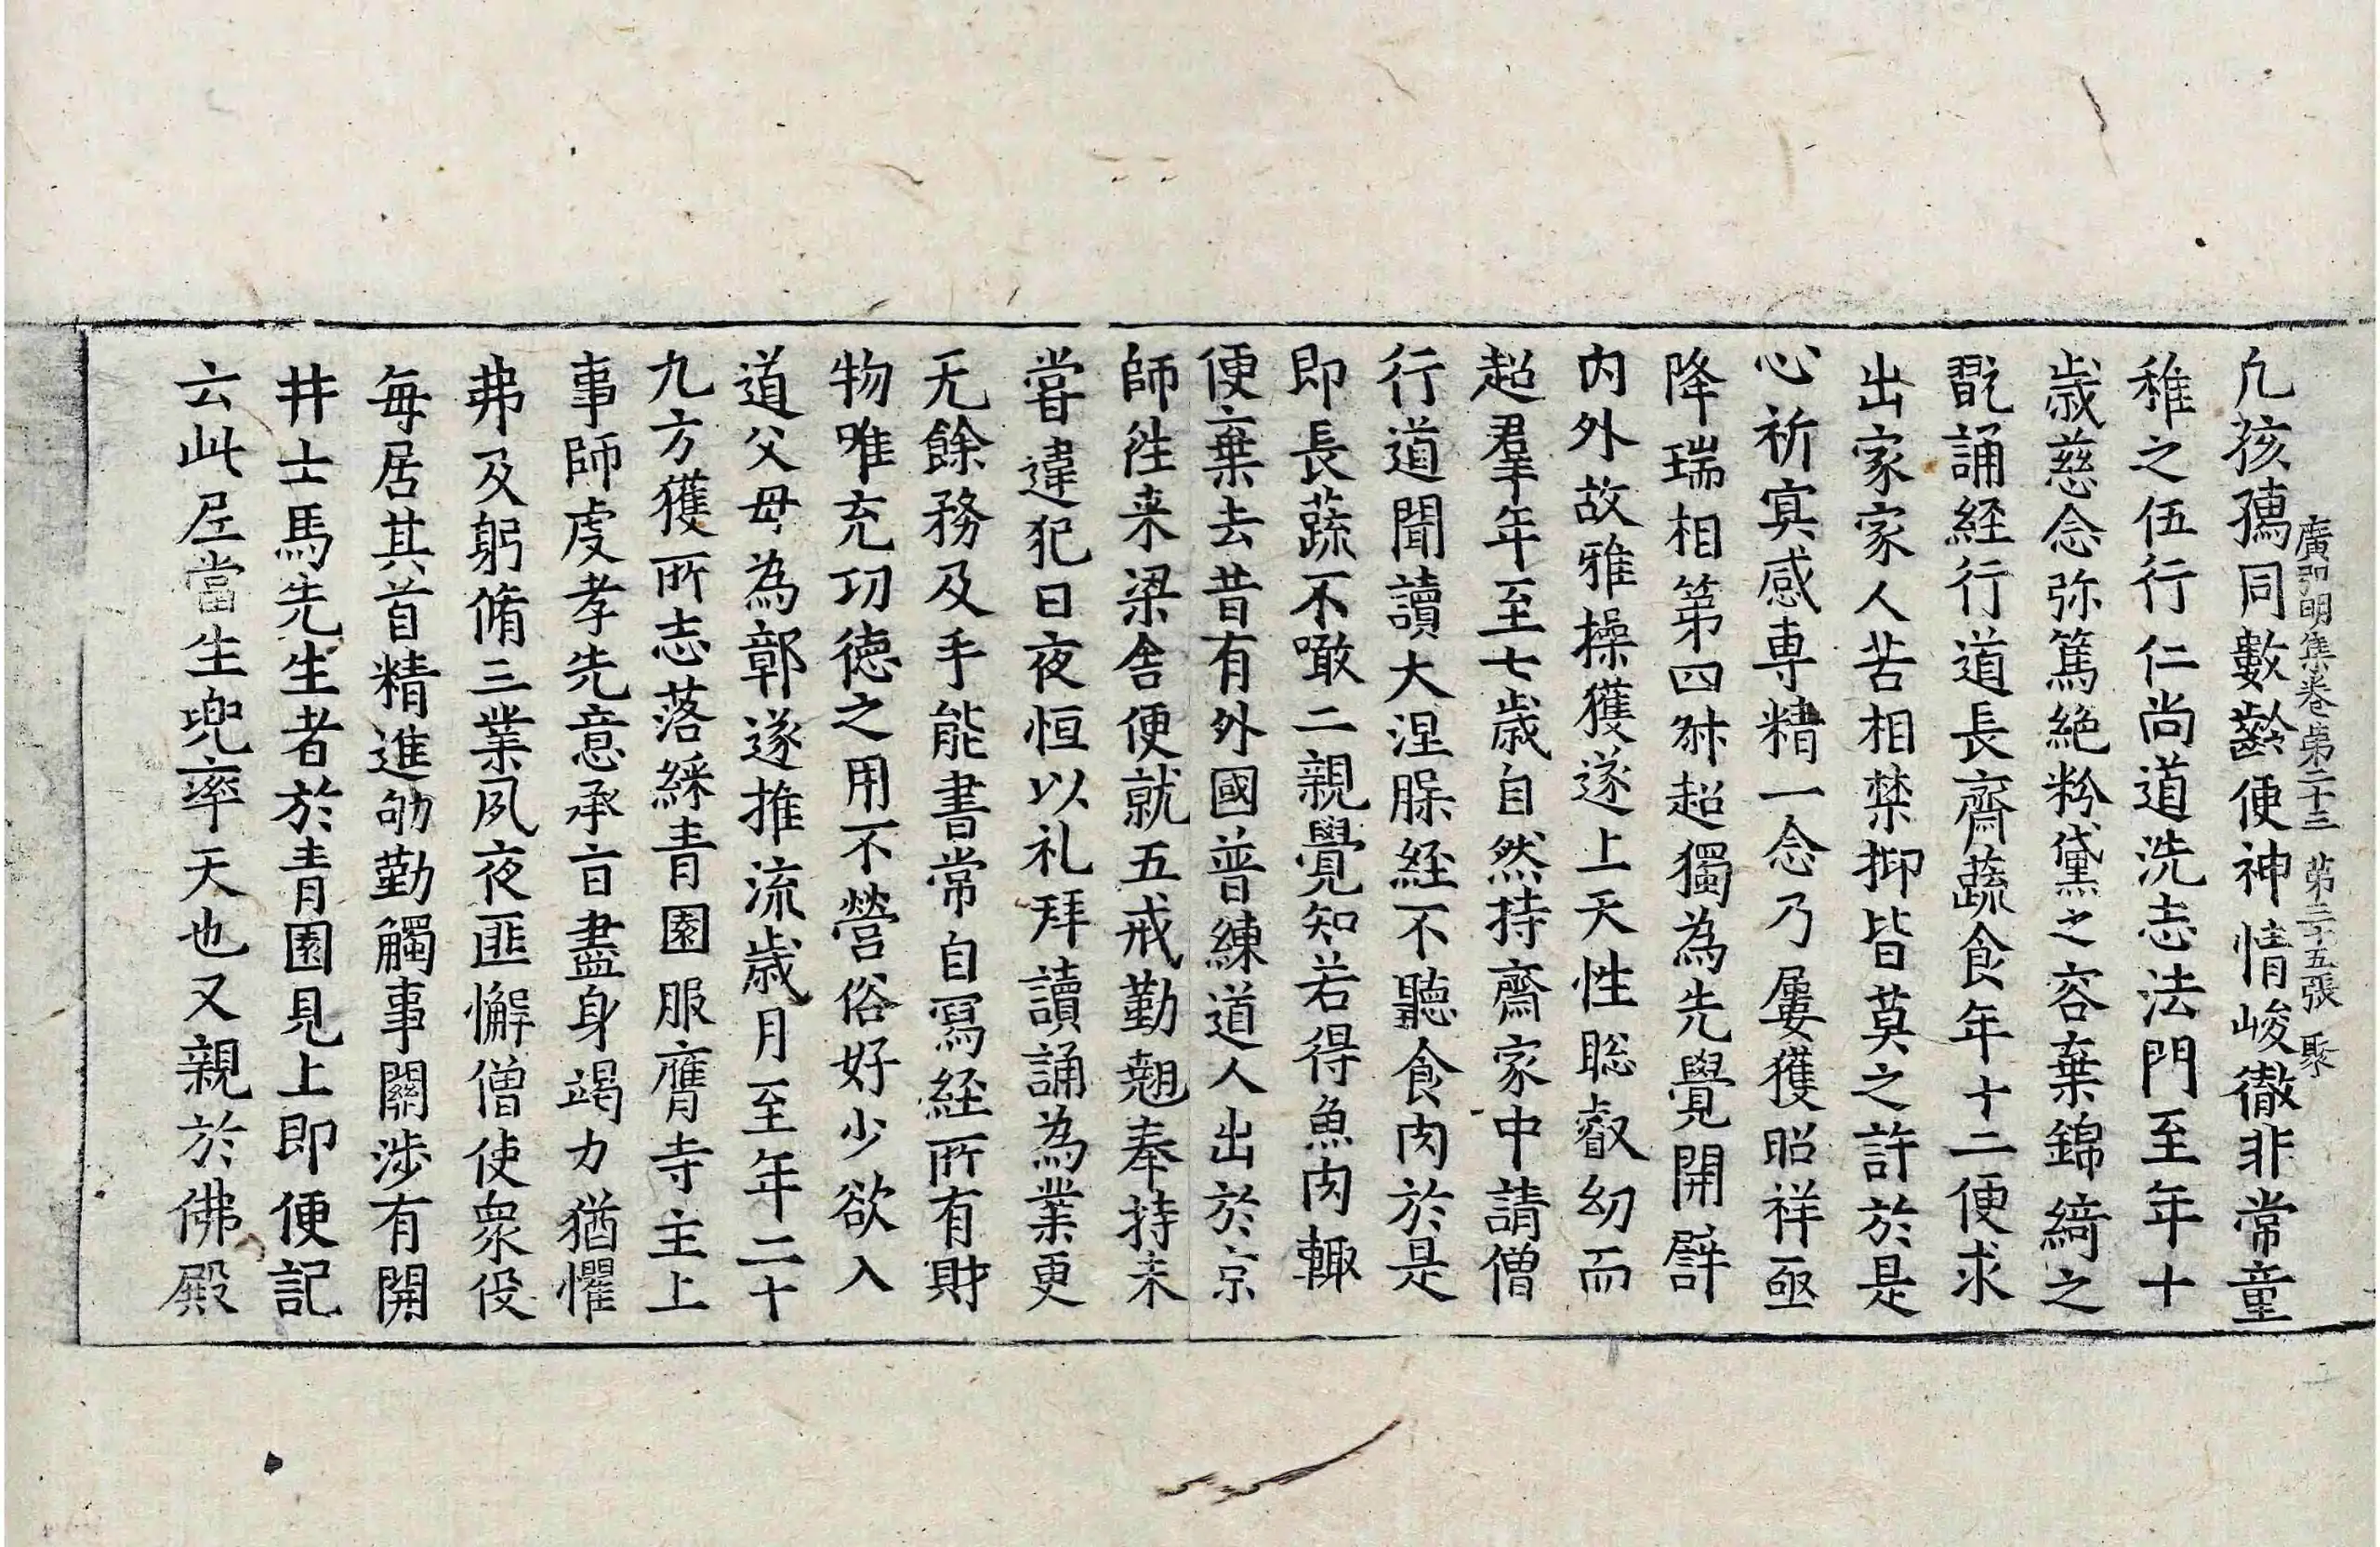 廣弘明集卷第二十三　第二十五張　聚
凢孩孺同數齡便神情峻徹非常童
稚之伍行仁尚道洗志法門至年十
歳慈念弥篤絶粉黛之容棄錦綺之
翫誦経行道長齋蔬食年十二便求
出家家人苦相禁抑皆莫之許於是
心祈寘感専精一念乃屢獲昭祥亟
降瑞相第四叔超獨為先覺開譬
内外故雅操獲遂上天性聡叡幼而
超羣年至七歳自然持齋家中請僧
行道聞讀大涅槃経不聽食肉於是
即長蔬不噉二親覺知若得魚肉輙
便棄去昔有外國普練道人出於京
師徃来梁舍便就五戒勤翹奉持未
嘗違犯日夜恒以礼拜讀誦為業更
无餘務及手能書常自寫経所有財
物唯充功徳之用不營俗好少欲入
道父母為鄣遂推流歳月至年二十
九方獲所志落綵青園服膺寺主上
事師虔孝先意承旨盡身竭力猶懼
弗及躬脩三業夙夜匪懈僧使衆役
毎居其首精進劬勤觸事關渉有開
井士馬先生者於青園見上即便記
云此尼當生兜率天也又親於佛殿